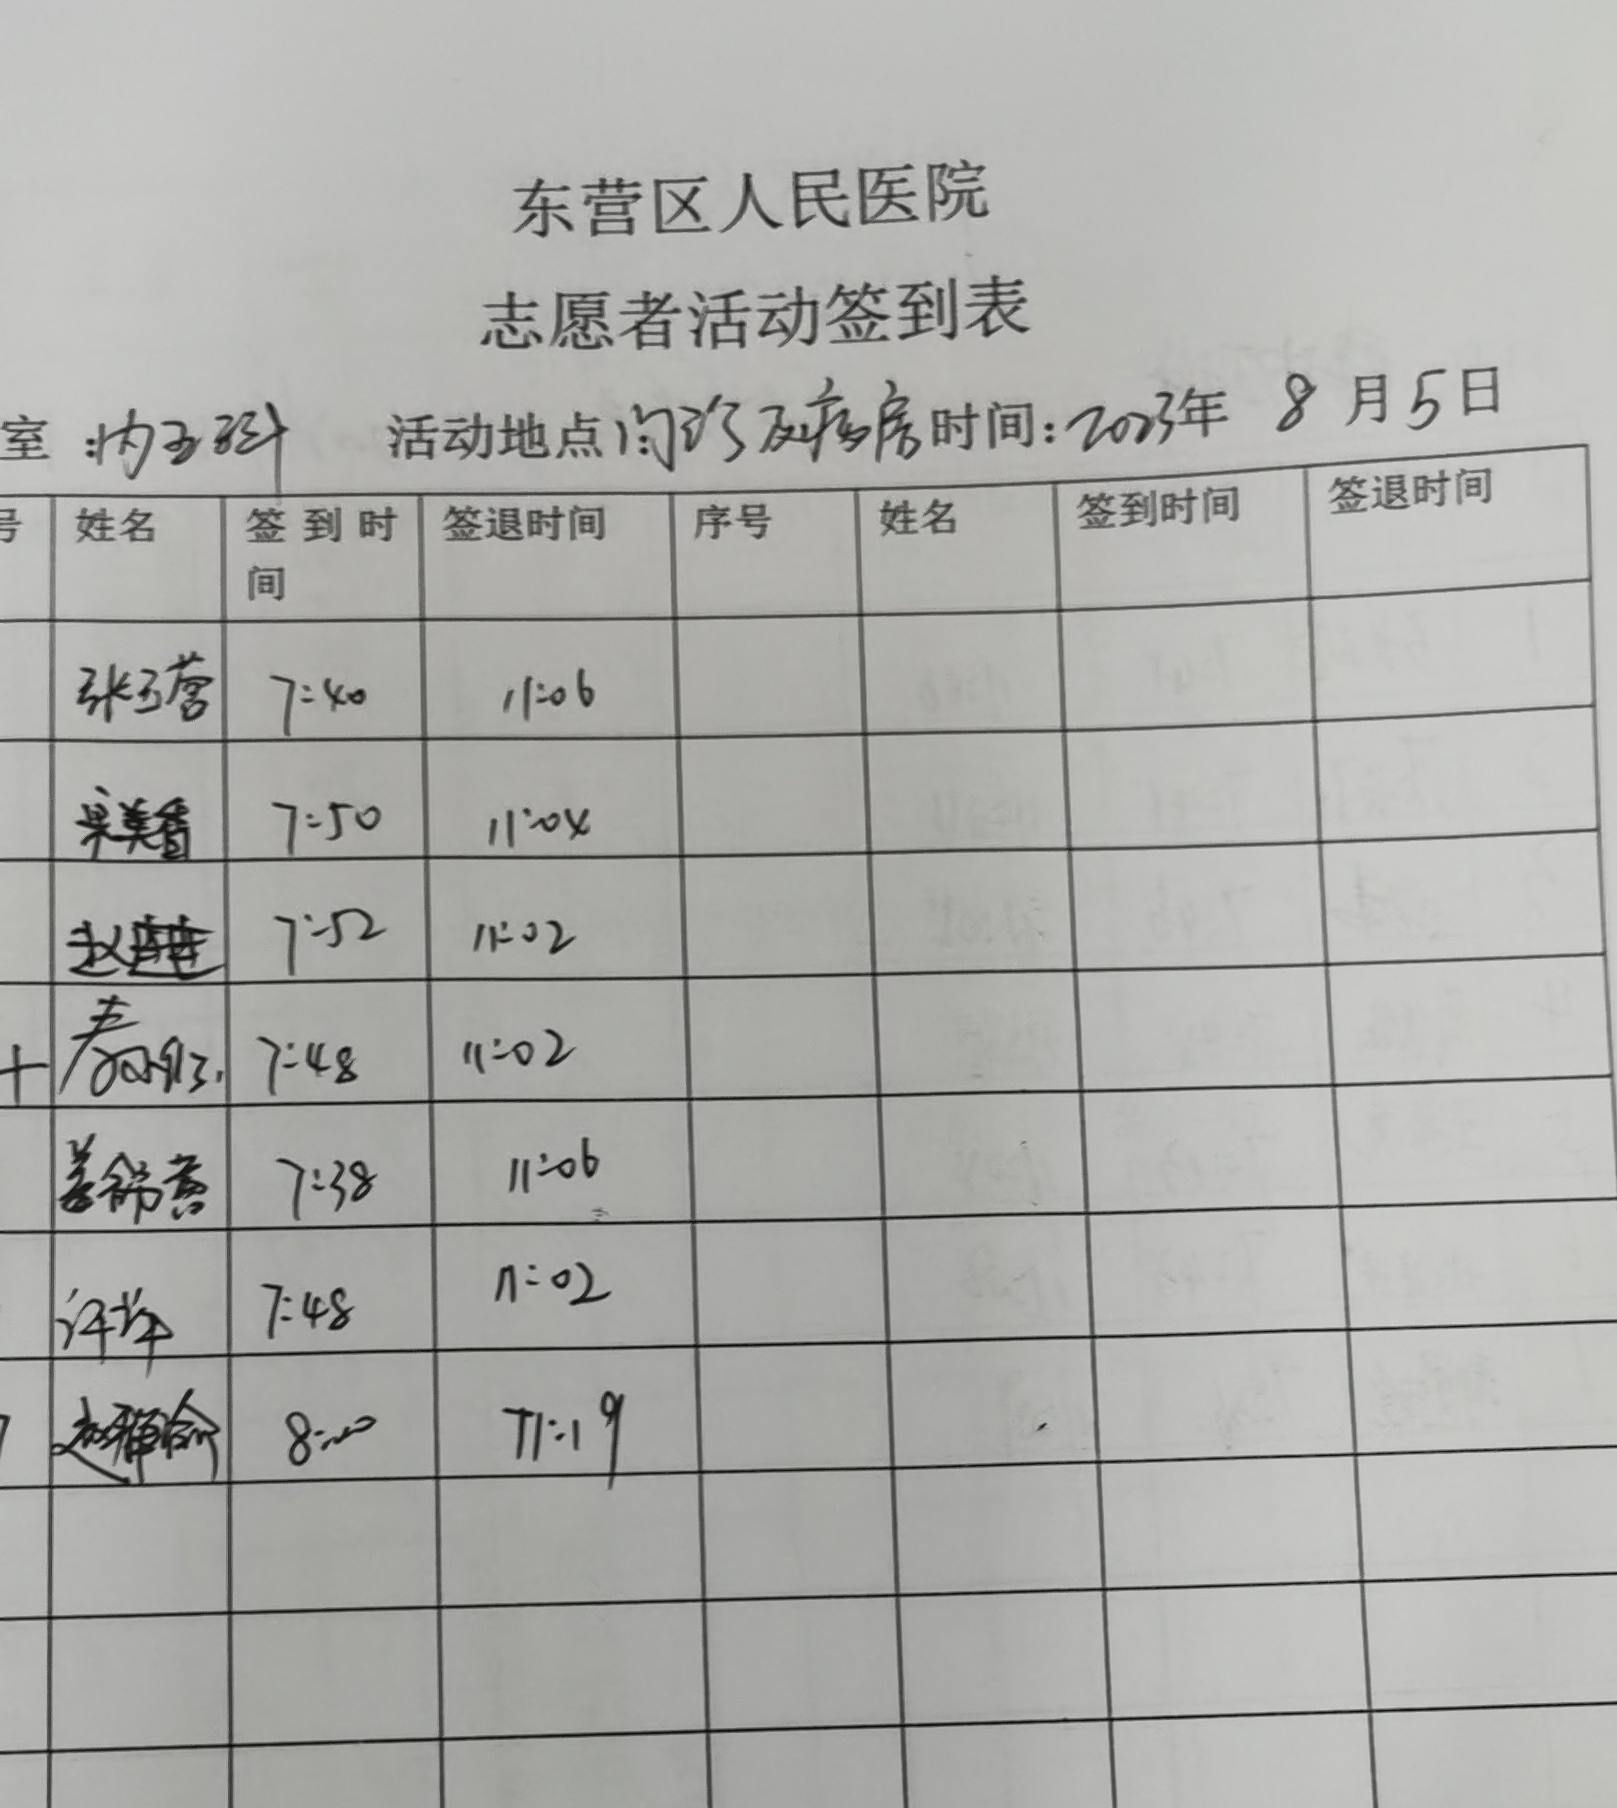 东营区人民医院
志愿者活动签到表
室:内五科 活动地点门诊及病房时间:2023年 8月5日
号 姓名 签到时间 签退时间 序号 姓名 签到时间 签退时间
张玉营 7:40 11:06
美香 7:50 11:04
赵 7:52 11:02
7:48 11:02
姜 7:38 11:06
许 7:48 11:02
赵 8:00 11:19